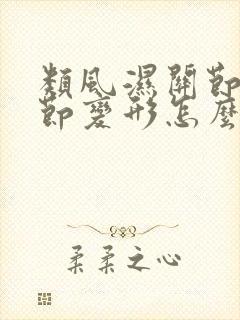 類風濕關節
節變形怎麼
柔柔之心